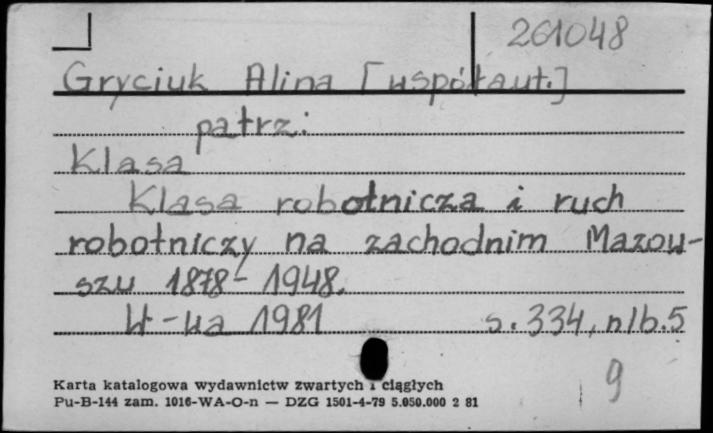 261048
Gryciuk Alina [współaut.]
patrz:
Klasa
Klasa robotnicza i ruch
robotniczy na zachodnim Mazow-
szu 1878-1948.
W-wa 1981 s. 334, nlb. 5
9
Karta katalogowa wydawnictw zwartych i ciągłych
Pu-B-144 zam. 1016-WA-O-n — DZG 1501-4-79 5.050.000 2 81